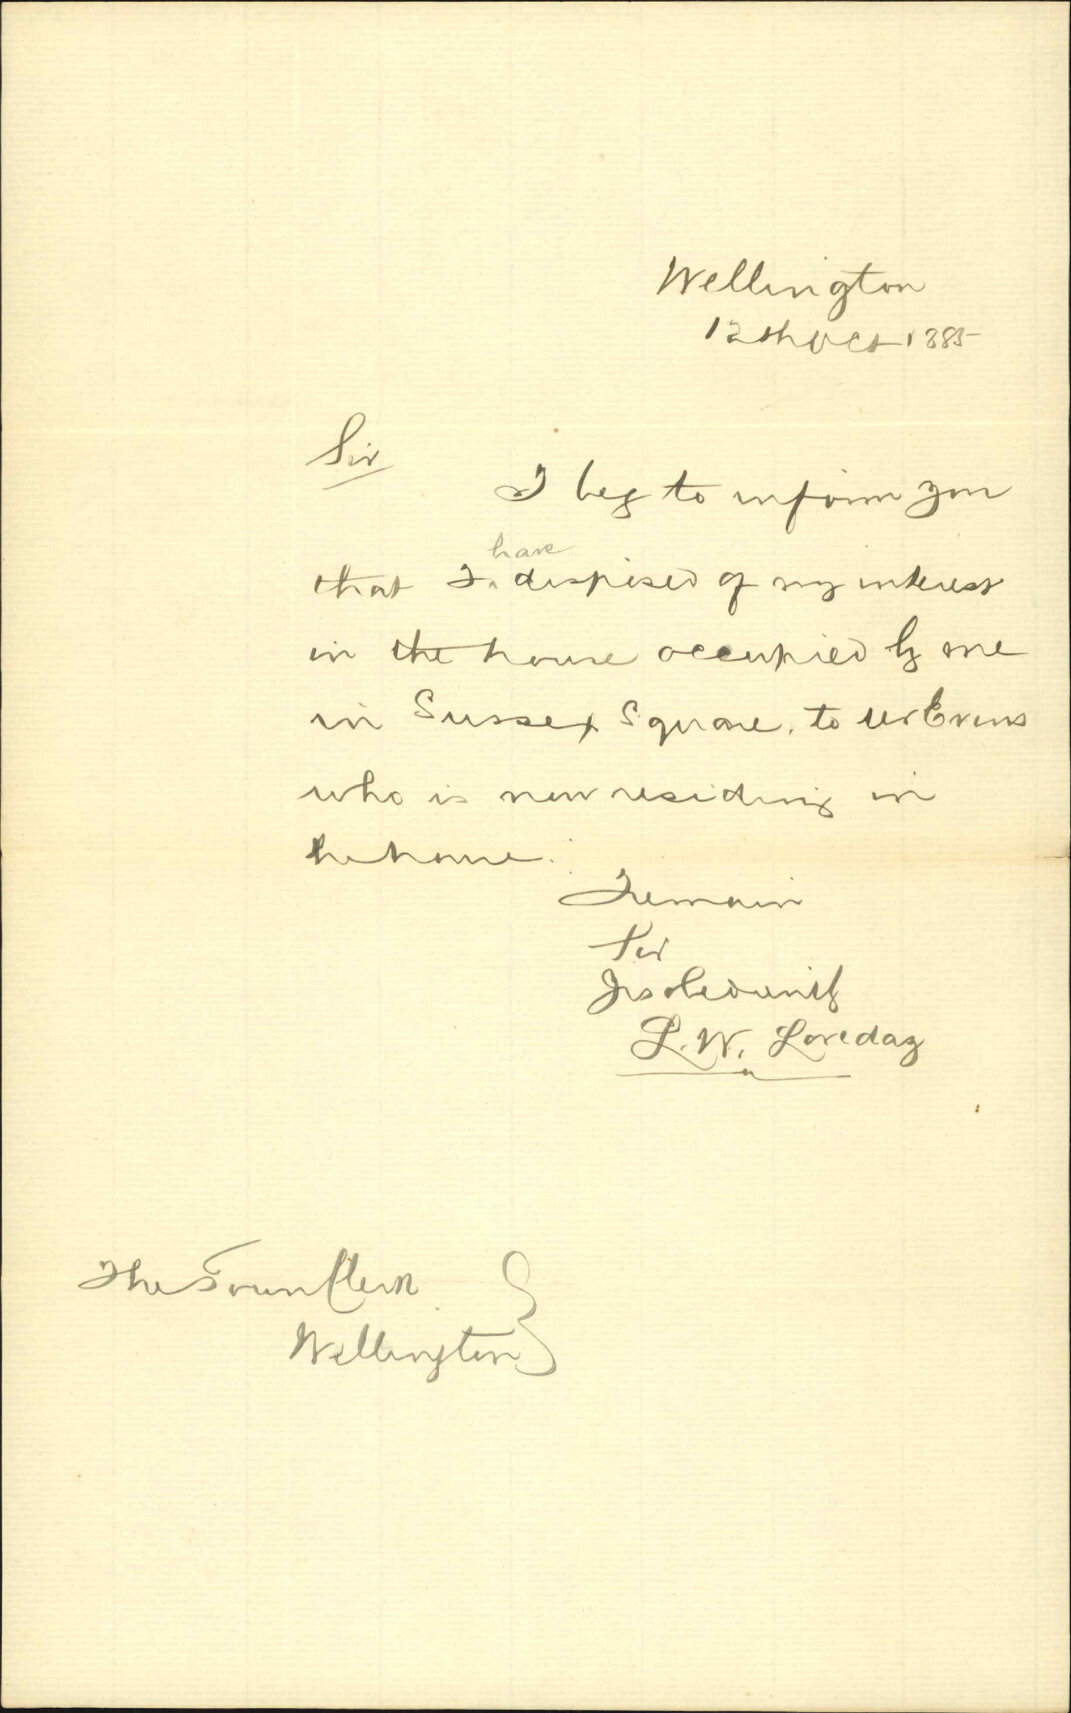 Wellington
12th Oct 1885
Sir
I beg to inform you
have
that I ‸ disposed of my interest
in the house occupied by me
in Sussex Square, to Mr Evens
who is now residing in
the house.
I remain
Sir
Yrs obediently
L. W. Loveday
The Town Clerk
Wellington